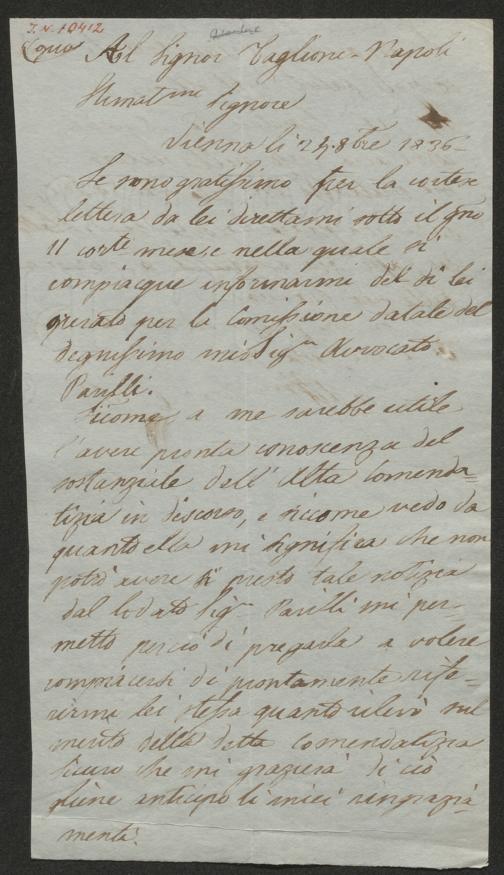 I.N. 10412
Copia Al Signor Taglione - Napoli
Stimatme Signore
Vienna li 24. 8bre 1836
Le sono gratissimo per la cortese
lettera da lei direttami sotto il gno
11 corte mese, e nella quale si
compiacque informarmi del di lei
operato per la Comissione datale del
degnissimo mio Sigr Avvocato
Parilli.
Sicome a me sarebbe utile
l'avere pronta conoscenza del
sostanziale dell' Alta Comenda-
tizia in discorso, e sicome vedo da
quanto ella mi significa che non
potrò avere sì presto tale notizia
dal lodato Sigr Parilli mi per-
metto perciò di pregarla a volere
compiacersi di prontamente rife-
rirmi lei stessa quanto rilevò sul
merito della detta comendatizia
sicuro che mi grazierà di ciò
gliene anticipo li miei ringrazia-
menti.